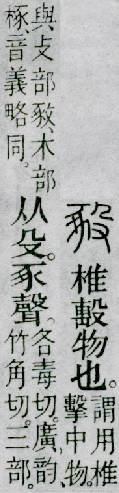 豛 椎毄物也。謂用椎
擊中物。
與攴部𢽴、木部
椓、音義略同。
从殳。豖聲。
各毒切。廣韵
竹角切。三部。